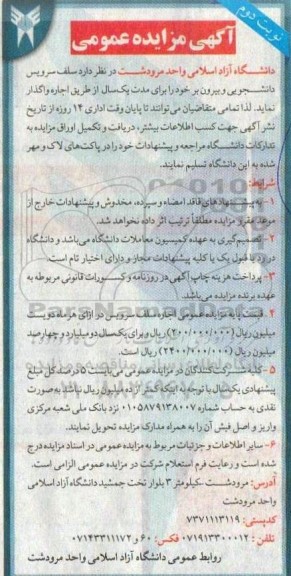 نوبت دوم
آگهی مزایده عمومی
دانشگاه آزاد اسلامی واحد مرودشت در نظر دارد سلف سرویس
دانشجویی و بیرون بر خود را برای مدت یک‌سال از طریق اجاره واگذار
نماید. لذا تمامی متقاضیان می‌توانند تا پایان وقت اداری ۱۴ روزه از تاریخ
نشر آگهی جهت کسب اطلاعات بیشتر، دریافت و تکمیل اوراق مزایده به
تدارکات دانشگاه مراجعه و پیشنهادات خود را در پاکت‌های لاک و مهر
شده به این دانشگاه تسلیم نمایند.
شرایط:
۱- به پیشنهادهای فاقد امضاء و سپرده، مخدوش و پیشنهادات خارج از
موعد مقرر مزایده مطلقاً ترتیب اثر داده نخواهد شد.
۲- تصمیم‌گیری به عهده کمیسیون معاملات دانشگاه می‌باشد و دانشگاه
در رد یا قبول یک یا کلیه پیشنهادات مجاز و دارای اختیار تام است.
۳- پرداخت هزینه چاپ آگهی در روزنامه و کسورات قانونی مربوطه به
عهده برنده مزایده می‌باشد.
۴- قیمت پایه مزایده عمومی اجاره سلف سرویس در ازای هر ماه دویست
میلیون ریال (۲۰۰/۰۰۰/۰۰۰) ریال و برای یک‌سال دو میلیارد و چهارصد
میلیون ریال (۲۴۰۰/۰۰۰/۰۰۰) ریال است.
۵- کلیه شرکت‌کنندگان در مزایده عمومی می‌بایست ۵ درصد کل مبلغ
پیشنهادی یک‌سال با توجه به اینکه کمتر از ده میلیون ریال نباشد به صورت
نقدی به حساب شماره ۰۱۰۵۸۷۹۱۳۸۰۰۷ نزد بانک ملی شعبه مرکزی
واریز و اصل فیش آن را به همراه مدارک مزایده تحویل نمایند.
۶- سایر اطلاعات و جزئیات مربوط به مزایده عمومی در اسناد مزایده درج
شده است و رعایت فرم استعلام شرکت در مزایده عمومی الزامی است.
آدرس: مرودشت -کیلومتر ۳ بلوار تخت جمشید دانشگاه آزاد اسلامی
واحد مرودشت
کدپستی: ۷۳۷۱۱۱۳۱۱۹
تلفن: ۰۷۱۹۱۳۳۰۰۰۱۲ فکس: ۶۰ و ۰۷۱۴۳۳۱۱۱۷۲
روابط عمومی دانشگاه آزاد اسلامی واحد مرودشت